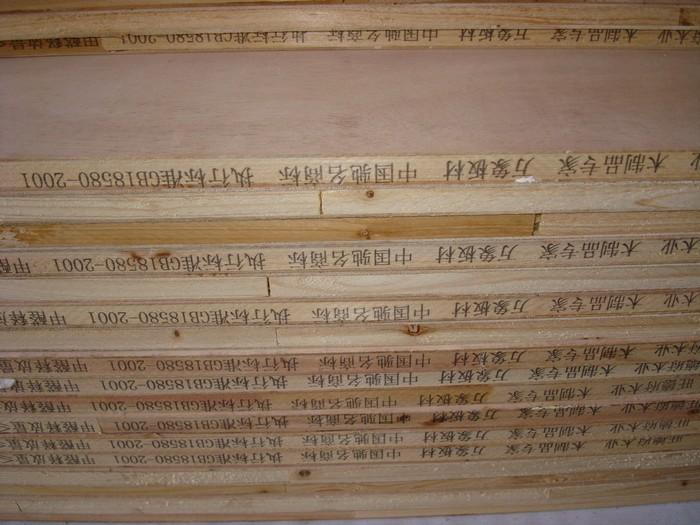 旺德府木业 木制品专家 万象板材 中国驰名商标 执行标准GB18580-2001 甲醛释放量≤
旺德府木业 木制品专家 万象板材 中国驰名商标 执行标准GB18580-2001 甲醛释放量≤
旺德府木业 木制品专家 万象板材 中国驰名商标 执行标准GB18580-2001 甲醛释放量
旺德府木业 木制品专家 万象板材 中国驰名商标 执行标准GB18580-2001 甲醛释放
木业 木制品专家 万象板材 中国驰名商标 执行标准GB18580-2001 甲醛释放量
木业 木制品专家 万象板材 中国驰名商标 执行标准GB18580-2001 甲醛释放
业 木制品专家 万象板材 中国驰名商标 执行标准GB18580-2001 甲醛
木制品专家 万象板材 中国驰名商标 执行标准GB18580-2001
木业 木制品专家 万象板材 中国驰名商标 执行标准GB18580-2001 甲醛释放量